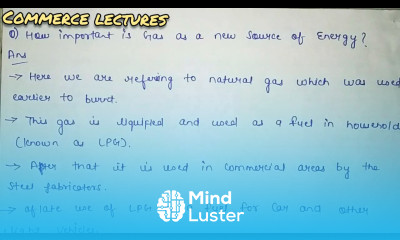 COMMERCE LECTURES
Q) How important is Gas as a new source of Energy?
Ans
→ Here we are refering to natural gas which was used
earlier to burnt.
→ This gas is liquified and used as a fuel in household
(known as LPG).
→ After that it is used in commercial areas by the
Steel fabricators.
→ use of LPG fuel for Car and other
Mind
Luster